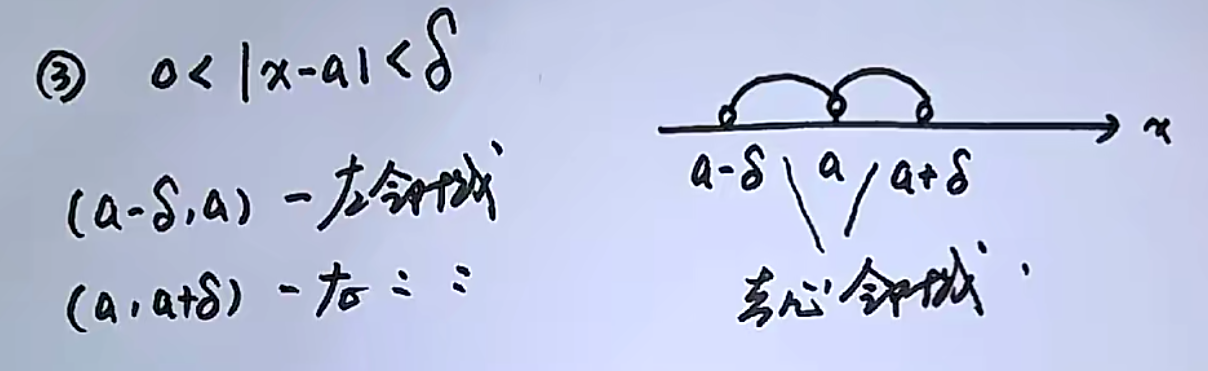 ③ 0<|x-a|<δ
(a-δ,a) - 左邻域
(a,a+δ) - 右：：
x
a-δ a a+δ
去心邻域